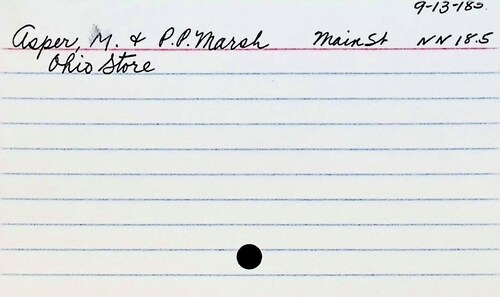 9-13-180.
Asper, M. & P.P. Marsh Main St NN 18.5
Ohio Store